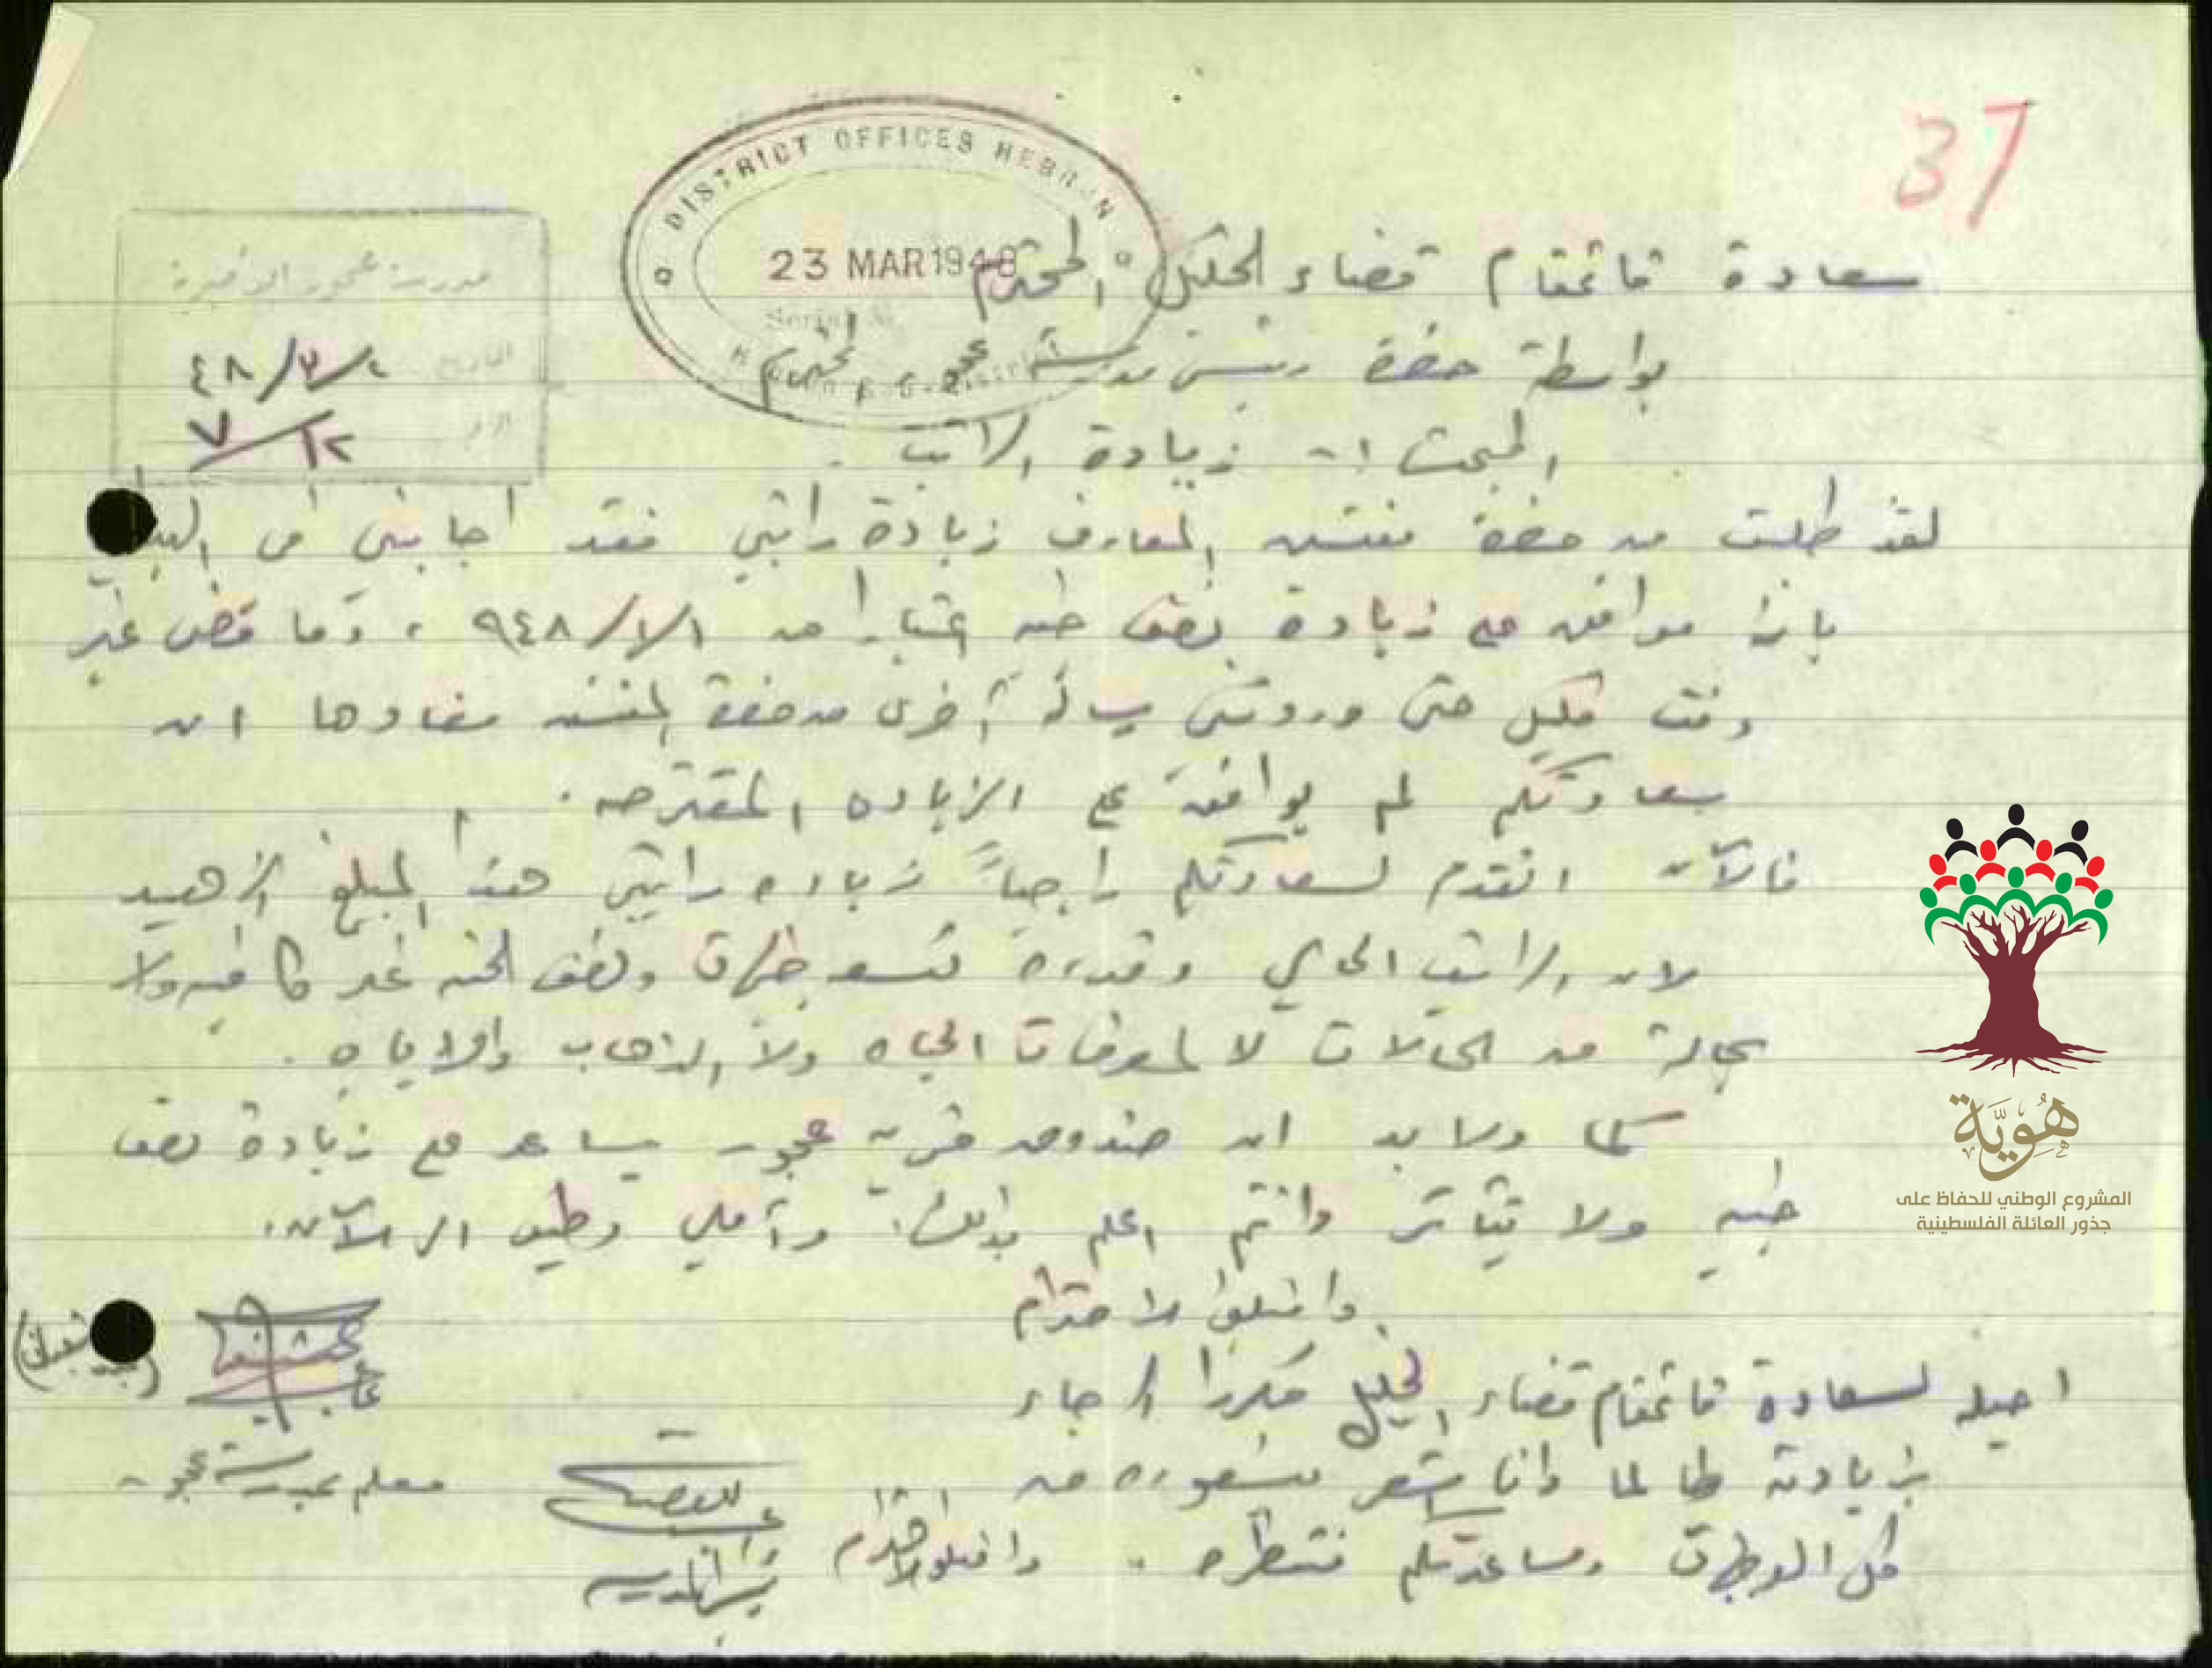 37
DISTRICT OFFICES HEBRON
23 MAR 1948
Serial No.
مدرسة عجور الاميرية
التاريخ ٤٨/٣/٢٠
الرقم ٧/١٢
سعادة قائمقام قضاء الخليل المحترم
بواسطة حضرة رئيس مدرسة عجور المحترم
المبحث :- زيادة الراتب .
لقد طلبت من حضرة مفتش المعارف زيادة راتبي فقد اجابني في
بانه موافق على زيادة نصف جنيه اعتبارا من ٩٤٨/١/١ ، وما مضى غير
وقت قليل حتى وردتني رسالة أخرى من حضرة المفتش مفادها ان
سعادتكم لم يوافق على الزياده المقترحه .
فالآن اتقدم لسعادتكم راجياً زياده راتبي هذا المبلغ الزهيد
لان الراتب الحالي وقدره تسع جنيهات ونصف الجنيه غير كافيه ولا
بحالة من الحالات لا لمصرفات الحياه ولا الذهاب والاياب .
كما ولا بد ان صندوق قرية عجور يساعد على زيادة نصف
جنيه ولا يتأثر وانتم اعلم بذلك . وأملي وطيد الى الآن .
واقبلوا الاحترام
معلم بمدرسة عجور
احيله لسعادة قائمقام قضاء الخليل مكررا الرجاء
بزيادته طالما وانا اشعر بشعوره من
كل الوجهات ومساعدتكم منتظره .. واقبلوا الاحترام
رئيس المدرسه
هُوِيَّة
المشروع الوطني للحفاظ على
جذور العائلة الفلسطينية